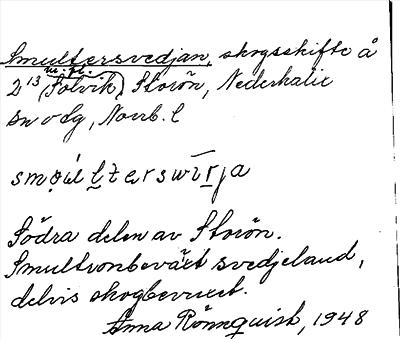 Smultersvedjan, skogsskifte å
m. fl.
2¹³ (Solvik) Storön, Nederkalix
sn o dg, Norrb. l
Södra delen av Storön.
Smultronbeväxt svedjeland,
delvis skogbevuxet.
Anna Rönnquist, 1948